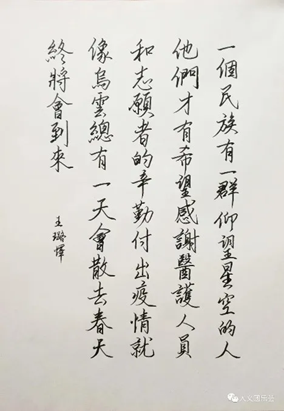 一個民族有一群仰望星空的人
他們才有希望感謝醫護人員
和志願者的辛勤付出疫情就
像烏雲總有一天會散去春天
終將會到來
王璐懌